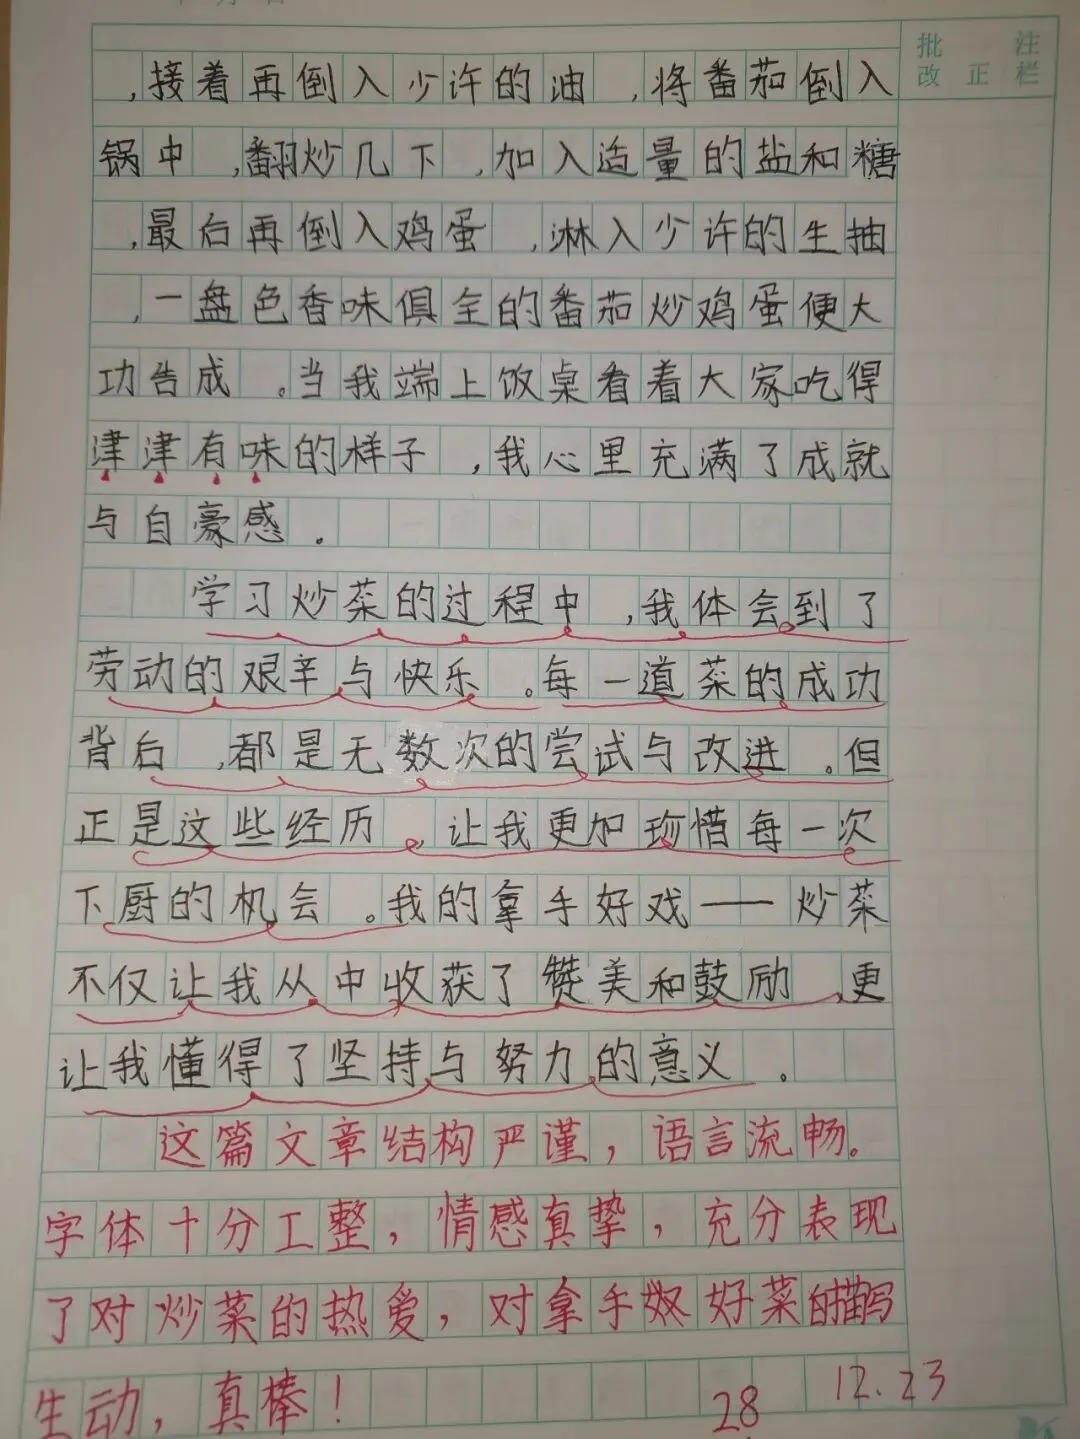 批 注
改正栏
,接着再倒入少许的油,将番茄倒入
锅中,翻炒几下,加入适量的盐和糖
,最后再倒入鸡蛋,淋入少许的生抽
,一盘色香味俱全的番茄炒鸡蛋便大
功告成。当我端上饭桌看着大家吃得
津津有味的样子,我心里充满了成就
与自豪感.
学习炒菜的过程中,我体会到了
劳动的艰辛与快乐。每一道菜的成功
背后,都是无数次的尝试与改进。但
正是这些经历,让我更加珍惜每一次
下厨的机会。我的拿手好戏——炒菜
不仅让我从中收获了赞美和鼓励,更
让我懂得了坚持与努力的意义.
这篇文章结构严谨,语言流畅。
字体十分工整,情感真挚,充分表现
了对炒菜的热爱,对拿手好菜的描写
生动,真棒!
28 12.23